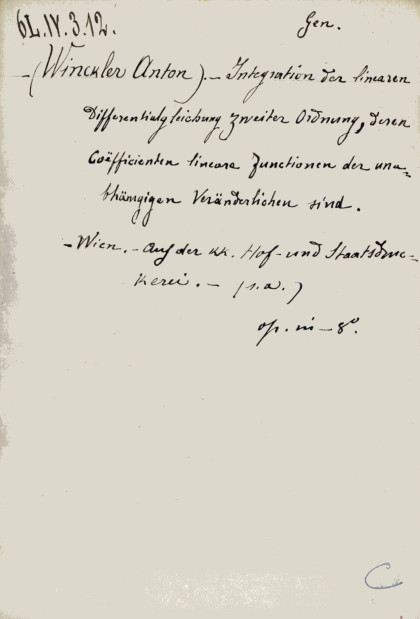 6L.IV.3.12.
Gen.
-(Winckler Anton).- Integration der linearen
Differentialgleichung zweiter Ordnung, deren
Coëfficienten lineare Functionen der una-
bhängigen Veränderlichen sind.
- Wien. - Auf der kk. Hof- und Staatsdruc-
kerei. - (s.a.)
op. in - 8º.
C